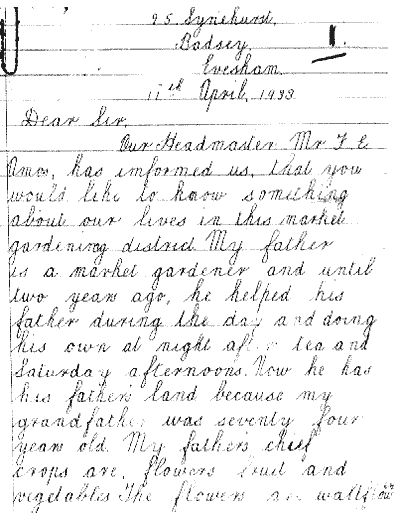 95 Synehurst,
Badsey,
1.
Evesham.
11th April, 1933
Dear Sir,
Our Headmaster Mr F E
Amos, has informed us, that you
would like to know something
about our lives in this market
gardening district My father
is a market gardener and until
two years ago, he helped his
father during the day and doing
his own at night after tea and
Saturday afternoons. Now he has
his fathers land because my
grandfather was seventy four
years old. My fathers chief
crops are, flowers fruit and
vegetables. The flowers are wallflow